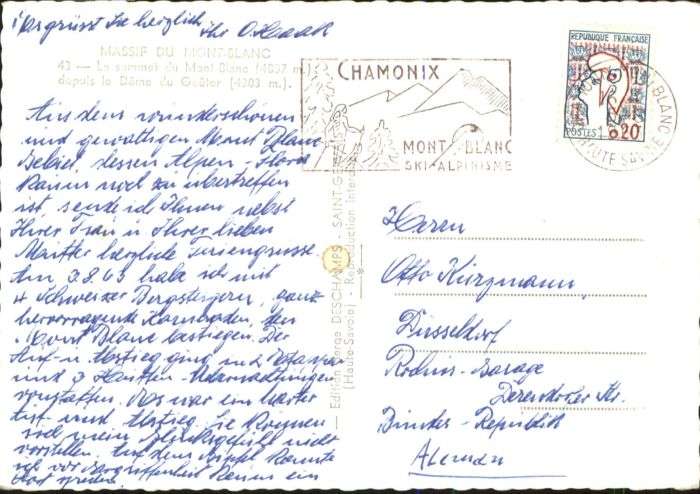 grüsst Sie herzlich Ihr
MASSIF DU MONT-BLANC
43 — Le sommet du Mont Blanc (4807 m.)
depuis le Dôme du Goûter (4303 m.).
Aus dem wunderschönen
und gewaltigen Mont Blanc
Gebiet, dessen Alpen-
kaum noch zu übertreffen
ist, sende ich Ihnen nebst
Ihrer Frau u Ihrer lieben
Mutter herzliche Feriengrüsse
Am 3.8.63 habe ich mit
4 Schweizer Bergsteigern, ganz
hervorragende Kameraden, den
Mont Blanc bestiegen. Der
Auf- u Abstieg ging in 2
und 3 Hütten-Übernachtungen
vonstatten. Das war ein harter
Auf- und Abstieg. Sie können
sich mein Glücksgefühl nicht
vorstellen. Auf dem Gipfel konnte
ich vor Ergriffenheit kaum ein
Wort reden.
Edition George DESCHAMPS - SAINT-GERVAIS
(Haute-Savoie) - Reproduction Interdite
CHAMONIX
MONT BLANC
SKI-ALPINISME
REPUBLIQUE FRANÇAISE
POSTES 0,20
BLANC
HAUTE SAVOIE
Herrn
Otto Kürzmann
Düsseldorf
Rodius-Garage
Derendorfer Str.
Bundes-Republik
Aleman